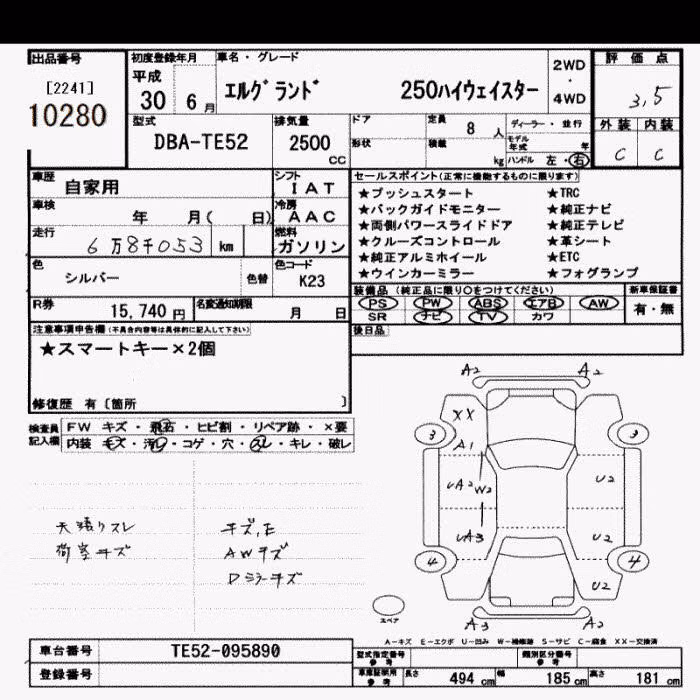 出品番号
[2241]
10280
初度登録年月
平成
30年 6月
車名・グレード
エルグランド 250ハイウェイスター
2WD
・
4WD
評価点
3,5
外装 内装
C C
型式
DBA-TE52
排気量
2500
CC
ドア
形状
定員 8 人
積載 kg
ディーラー・並行
モデル年式 年
ハンドル 左・右
車歴 自家用
シフト IAT
車検 年 月( 日)
冷房 AAC
走行 6万8千053 km
燃料 ガソリン
色 シルバー 色替
色コード K23
R券 15,740円
名変通知期限 月 日
セールスポイント(正常に機能するものに限ります)
★プッシュスタート ★TRC
★バックガイドモニター ★純正ナビ
★両側パワースライドドア ★純正テレビ
★クルーズコントロール ★革シート
★純正アルミホイール ★ETC
★ウインカーミラー ★フォグランプ
装備品(純正品に限り○をつけてください) 新車保証書
PS PW ABS エアB AW
SR ナビ TV カワ
有・無
後日品
注意事項申告欄(不具合内容等は具体的に記入して下さい)
★スマートキー×2個
修復歴 有〔箇所 〕
検査員記入欄
FW キズ・飛石・ヒビ割・リペア跡・×要
内装 キズ・汚レ・コゲ・穴・スレ・キレ・破レ
天張りスレ
荷室キズ
キズ,E
AWキズ
Dミラーキズ
A2 A2
XX
3 3
A1
UA2 W2 U2
UA3 U2
4 4
U2
A3 A2
スペア
A-キズ E-エクボ U-凹み W-補修跡 S-サビ C-腐食 XX-交換済
車台番号 TE52-095890
登録番号
型式指定番号 参考
類別区分番号 参考
車庫証明用 参考
長さ 494 cm 幅 185 cm 高さ 181 cm